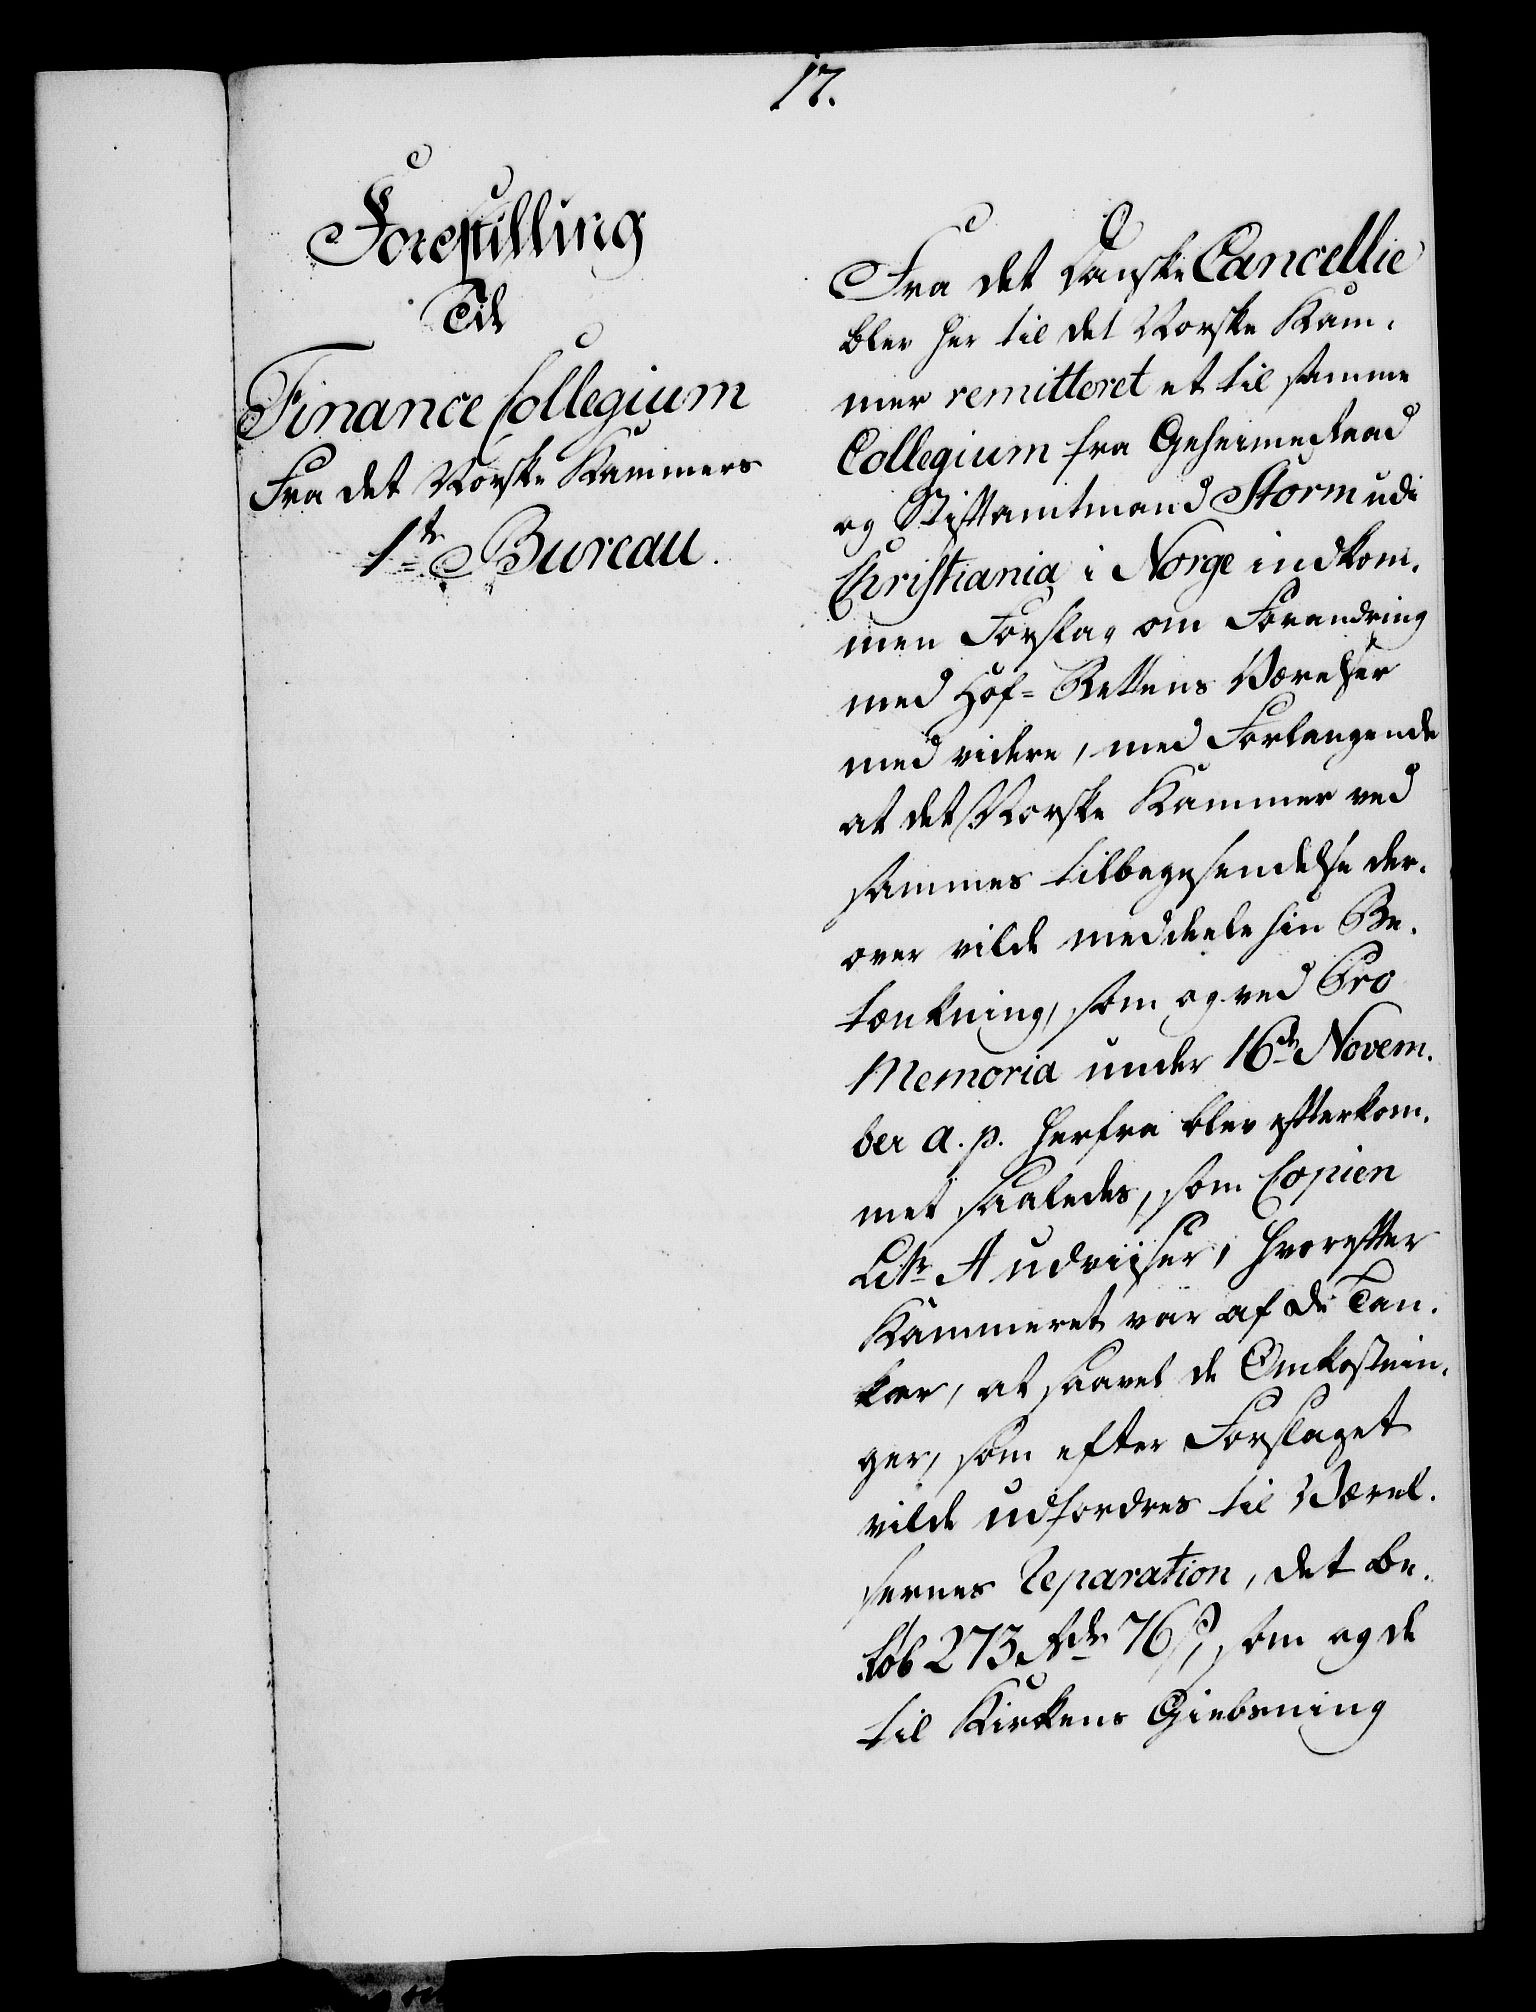 17.
Forestilling
Til
Finance Collegium
Fra det Norske Kammers
1te Bureau.
Fra det Danske Cancellie
blev her til det Norske Kam-
mer remitteret et til samme
Collegium fra Geheimeraad
og Stiftamtmand Storm udi
Christiania i Norge indkom-
men Forslag om Forandring
med Hof-Rettens Værelser
med videre, med Forlangende
at det Norske Kammer ved
sammes tilbagesendelse der-
over vilde meddeele sin Be-
tænkning, som og ved Pro
Memoria under 16de Novem-
ber a. p. herfra blev efterkom-
met saaledes, som Copien
Litr A udviiser, hvorefter
Kammeret var af de Tan-
ker, at saavel de Omkostnin-
ger, som efter Forslaget
vilde udfordres til Værel-
sernes Reparation, det be-
løb 273 Rdr 76 ß, som og de
til Kirkens Giebning